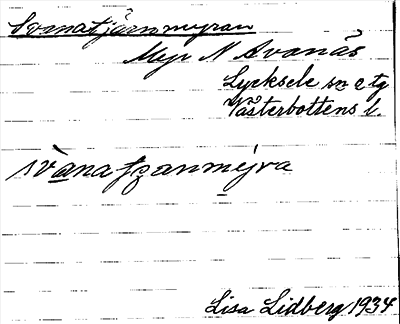 Svanatjärnmyran
Myr N Avanäs
Lycksele sn o tg
Västerbottens l.
svanatzanmyra
Lisa Lidberg 1934